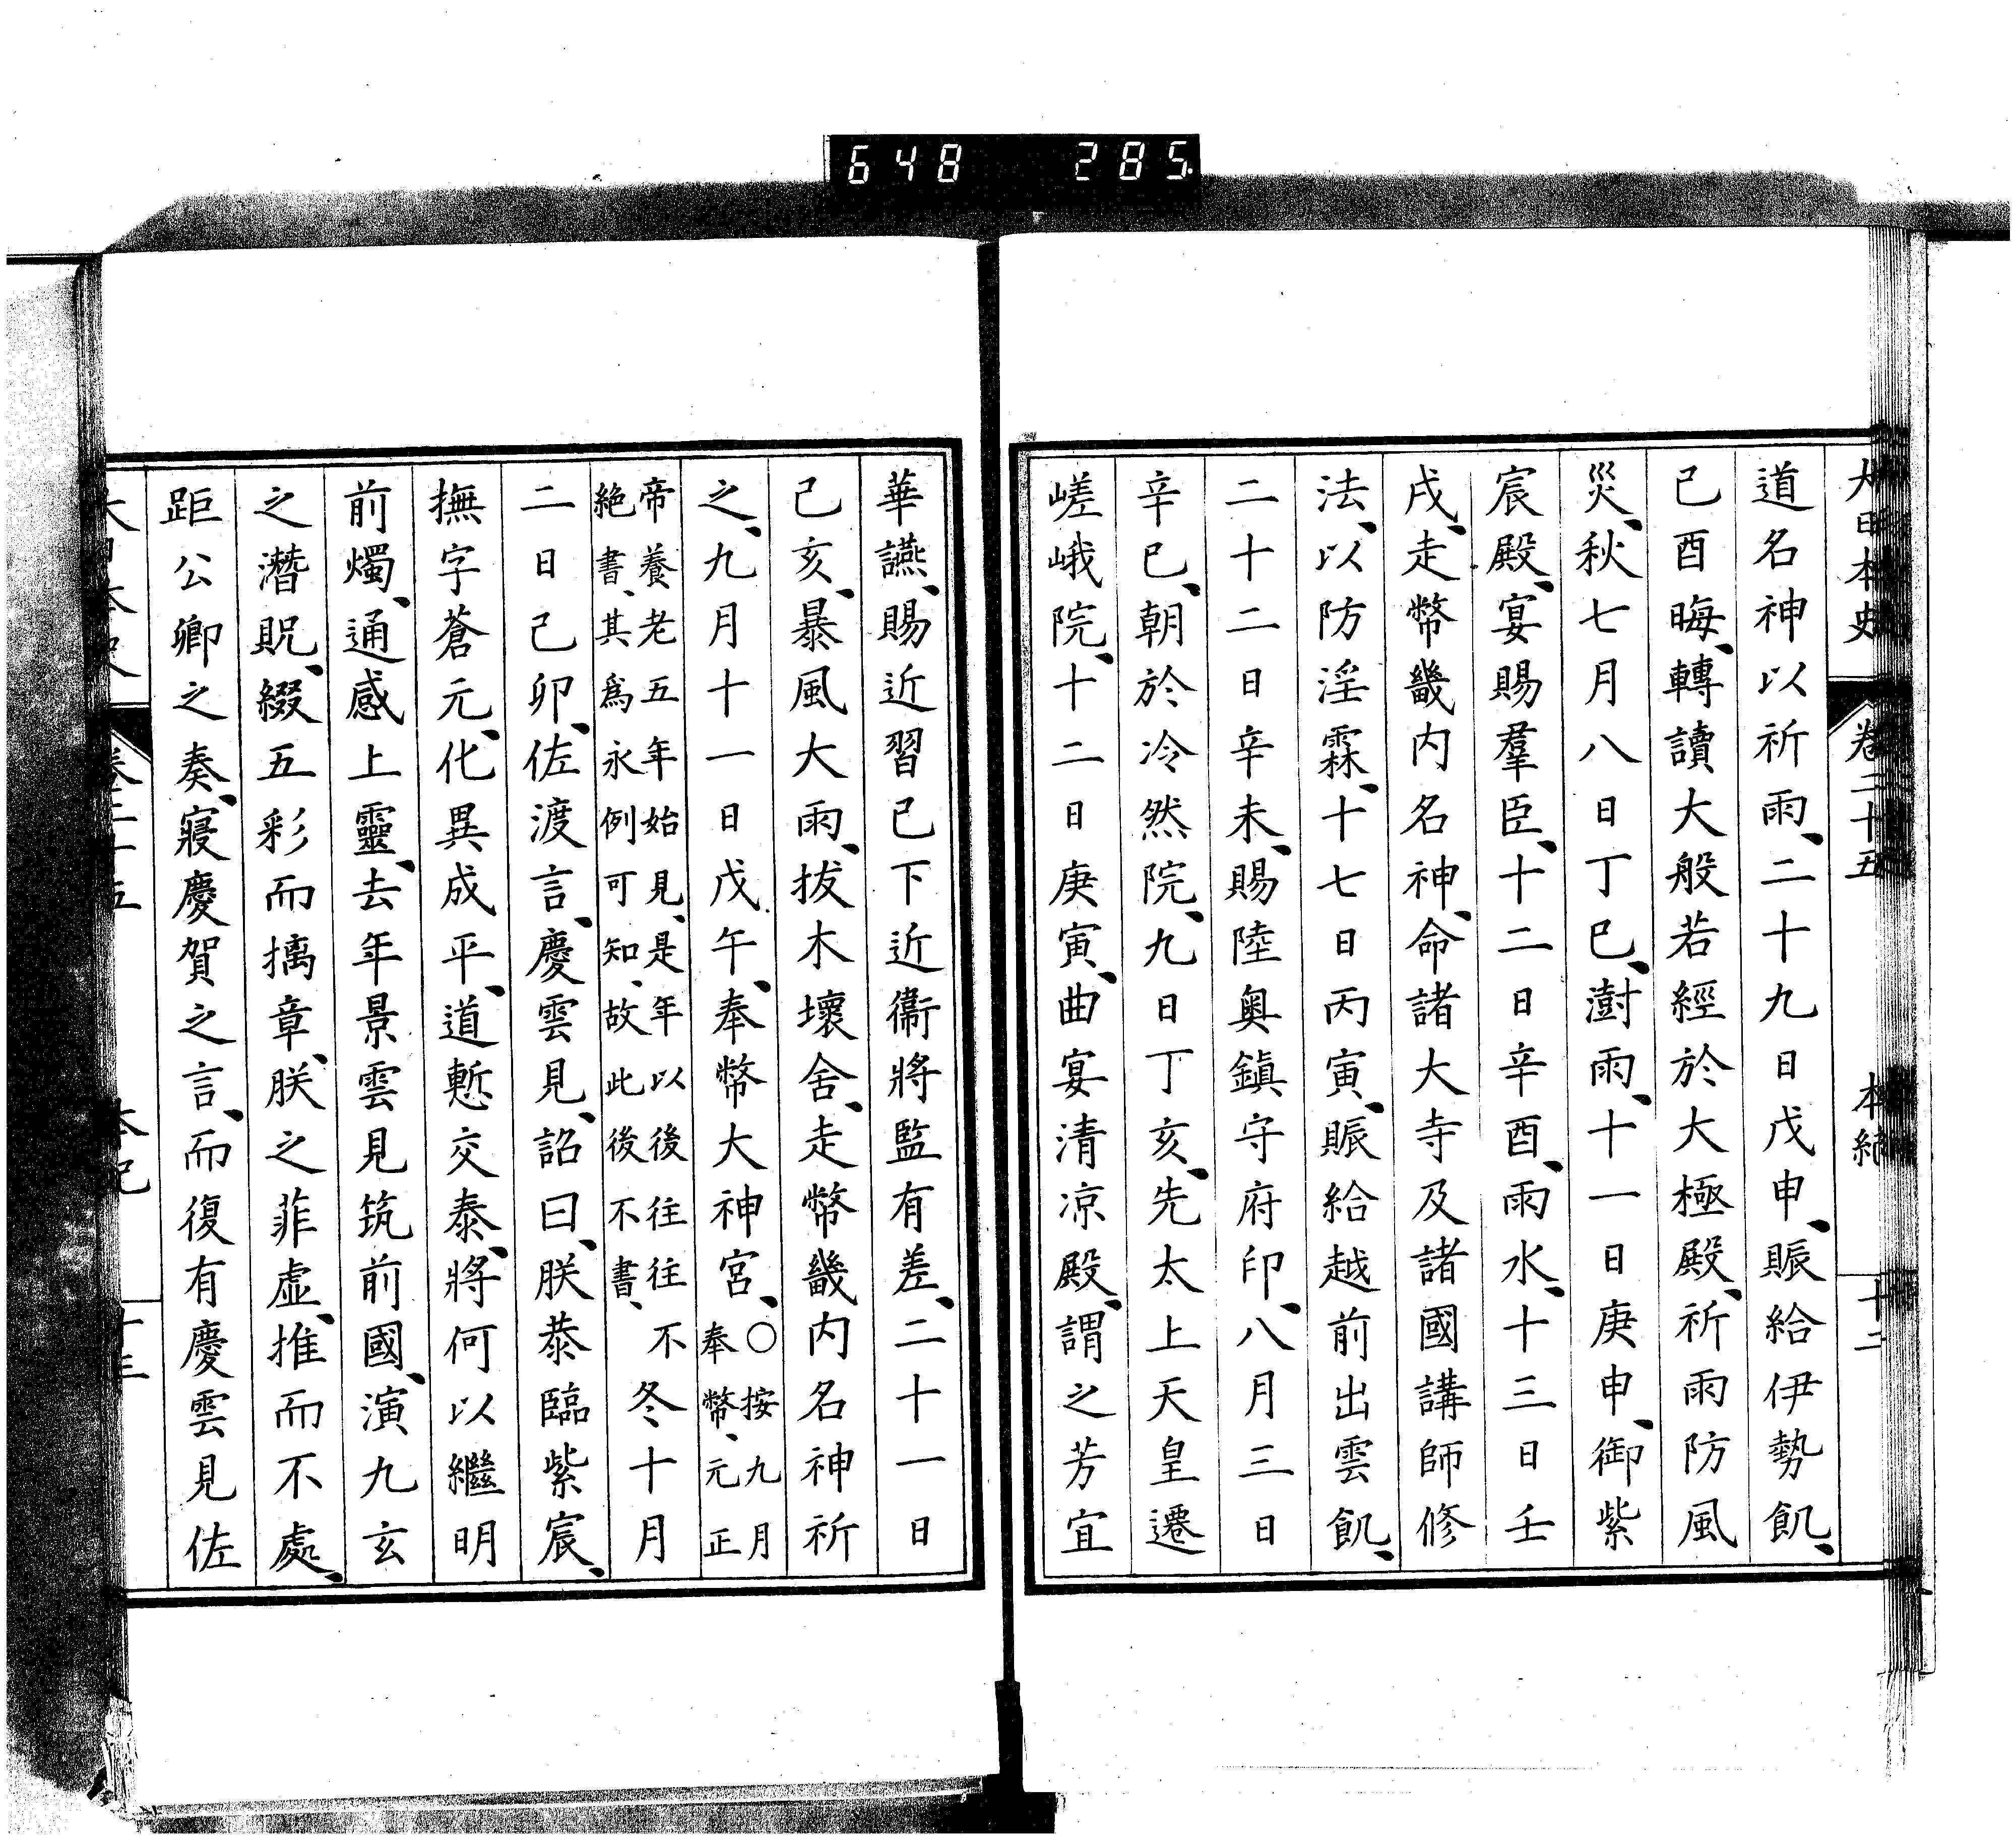 648 285
大日本史 卷二十五 本紀 十二
道名神以祈雨、二十九日戊申、賑給伊勢飢、
己酉晦、轉讀大般若經於大極殿、祈雨防風
災、秋七月八日丁巳、澍雨、十一日庚申、御紫
宸殿、宴賜羣臣、十二日辛酉、雨水、十三日壬
戌、走幣畿内名神、命諸大寺及諸國講師修
法、以防淫霖、十七日丙寅、賑給越前出雲飢、
二十二日辛未、賜陸奧鎮守府印、八月三日
辛巳、朝於冷然院、九日丁亥、先太上天皇遷
嵯峨院、十二日庚寅、曲宴清凉殿、謂之芳宜
華讌、賜近習已下近衞將監有差、二十一日
己亥、暴風大雨、拔木壞舍、走幣畿内名神祈
之、九月十一日戊午、奉幣大神宮、〇按九月奉幣、元正
帝養老五年始見、是年以後往往不絶書、其爲永例可知、故此後不書、冬十月
二日己卯、佐渡言、慶雲見、詔曰、朕恭臨紫宸、
撫字蒼元、化異成平、道慙交泰、將何以繼明
前燭、通感上靈、去年景雲見筑前國、演九玄
之潛貺、綴五彩而摛章、朕之菲虚、推而不處、
距公卿之奏、寢慶賀之言、而復有慶雲見佐
大日本史 卷二十五 本紀 十三